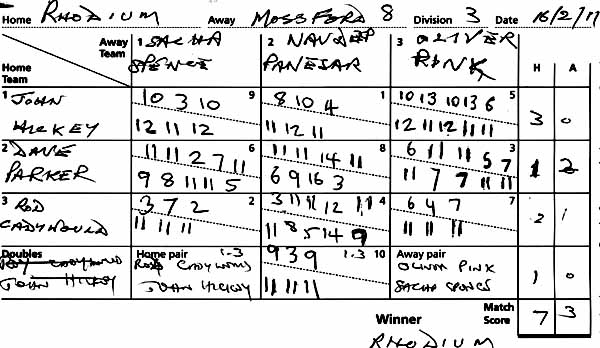 Home RHODIUM Away MOSSFORD 8 Division 3 Date 16/2/11
Away Team 1 SACHA SPENCE 2 NAVDEEP PANESAR 3 OLIVER PINK
Home Team H A
1 JOHN HICKEY
10 3 10 9 8 10 4 1 10 13 10 13 6 5
12 11 12 11 12 11 12 11 12 11 11 3 0
2 DAVE PARKER
11 11 2 7 11 6 11 11 14 11 8 6 11 11 5 7 3
9 8 11 11 5 6 9 16 3 11 7 7 11 11 1 2
3 ROD
3 7 2 2 3 11 11 12 11 4 6 4 7 7
11 11 11 11 8 5 14 9 11 11 11 2 1
Doubles Home pair 1-3 9 3 9 1.3 10 Away pair
JOHN HICKEY ROD JOHN HICKEY 11 11 11 OLIVER PINK SACHA SPENCE 1 0
Match Score 7 3
Winner
RHODIUM